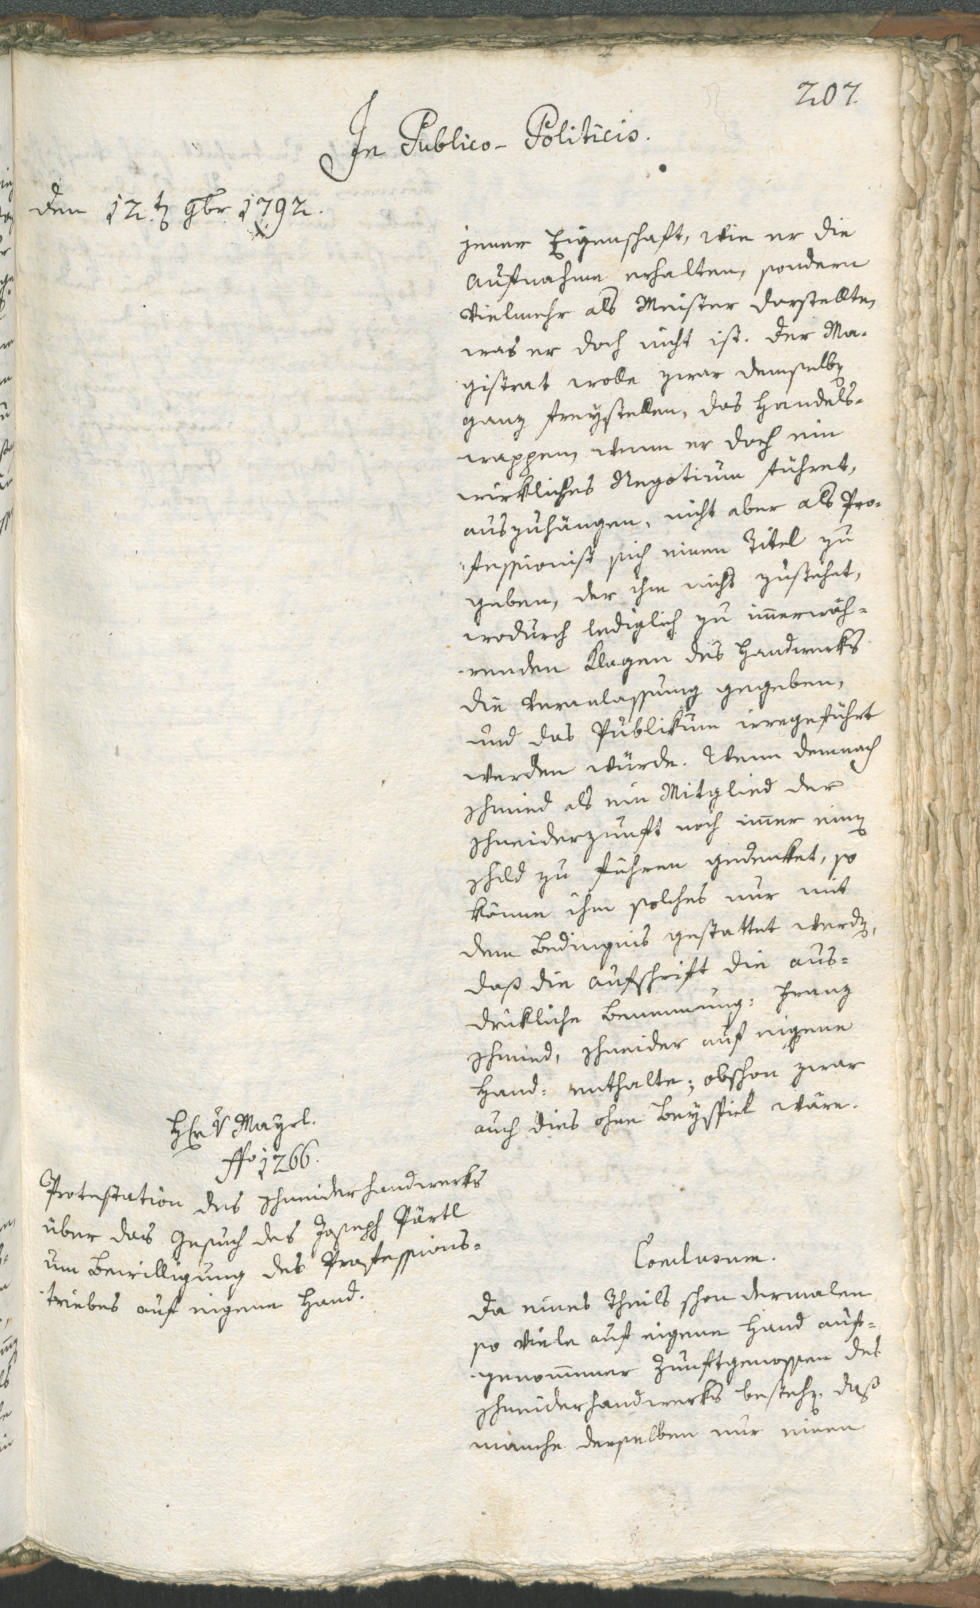 207.
In Publico-Politicis.
den 12.t 9br 1792.
jener Eigenschaft, wie er die
Aufnahme erhalten, sondern
vielmehr als Meister darstellte,
was er doch nicht ist. Der Ma-
gistrat wolle zwar demselb
ganz freystellen, das Handels-
wappen, wenn er doch ein
wirkliches Negotium führet,
auszuhängen, nicht aber als Pro-
fessionist sich einen Titel zu
geben, der ihm nicht zustehet,
wodurch lediglich zu imerwäh-
renden Klagen des Handwerks
die Veranlassung gegeben,
und das Publikum irregeführt
werden würde. Wenn demnach
Schmied als ein Mitglied der
Schneiderzunft noch imer ein
Schild zu führen gedenket, so
könne ihm solches nur mit
dem Bedingnis gestattet werd,
daß die Aufschrift die aus-
drükliche Benennung: Franz
Schmied, Schneider auf eigene
Hand: enthalte; obschon zwar
auch dies ohne Beyspiel wäre.
Hr v Mayrl.
ffo 1266.
Protestation des Schneiderhandwerks
über das Gesuch des Joseph Pärtl
um Bewilligung des Professions-
triebes auf eigene Hand.
Conclusum.
Da eines Theils schon dermalen
so viele auf eigene Hand auf-
genommener Zunftgenossen des
Schneiderhandwerks besteh, daß
manche derselben nur einen